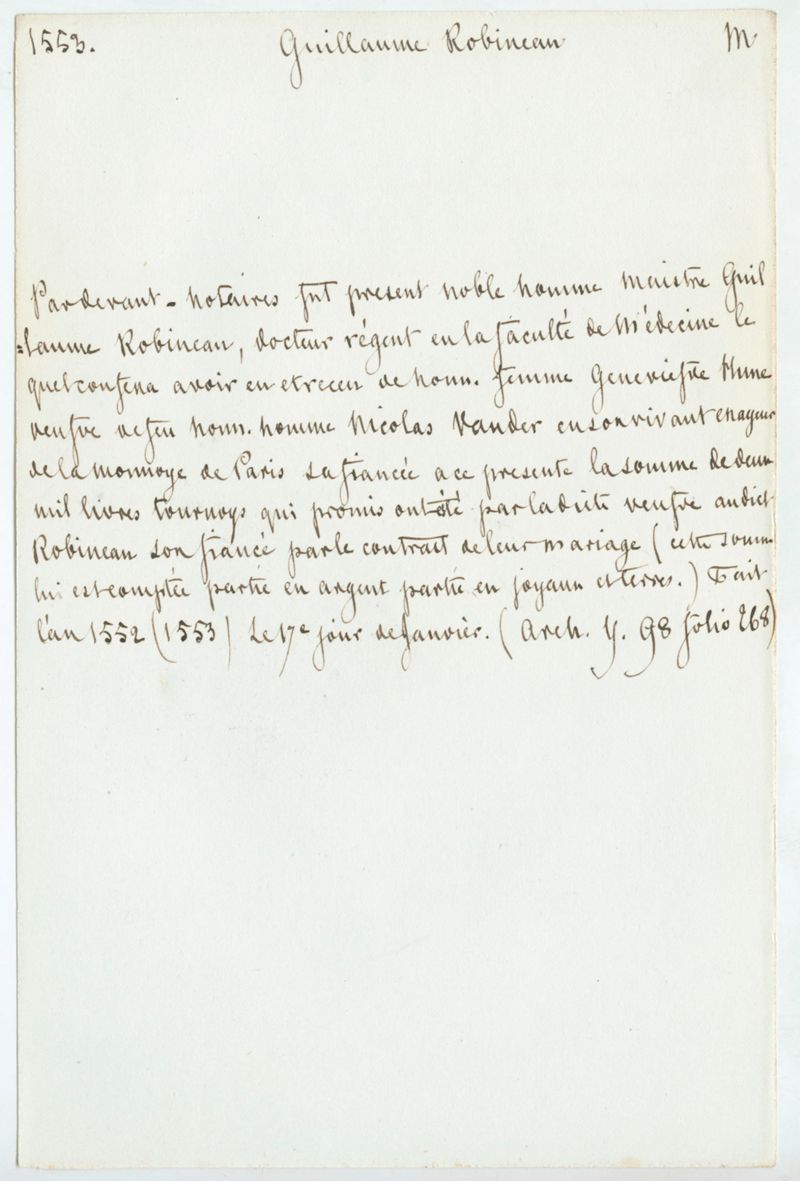 1553. Guillaume Robineau M
Pardevant - notaires fut present noble homme maistre Guil
=laume Robineau, docteur régent en la faculté de Médecine le
quel confessa avoir eu et receu de honn. femme Geneviefve Hune
veufve de feu honn. homme Nicolas Vander en son vivant
de la monnoye de Paris sa fiancée a ce presente la somme de deux
mil livres tournoys qui promis ont été par la dite veufve au dict
Robineau son fiancé par le contrait de leur mariage (cette somme
lui est comptée partie en argent partie en joyaux et terres.) Fait
l'an 1552 (1553) Le 17e jour de Janvier. (Arch. Y. 98 folio 268)